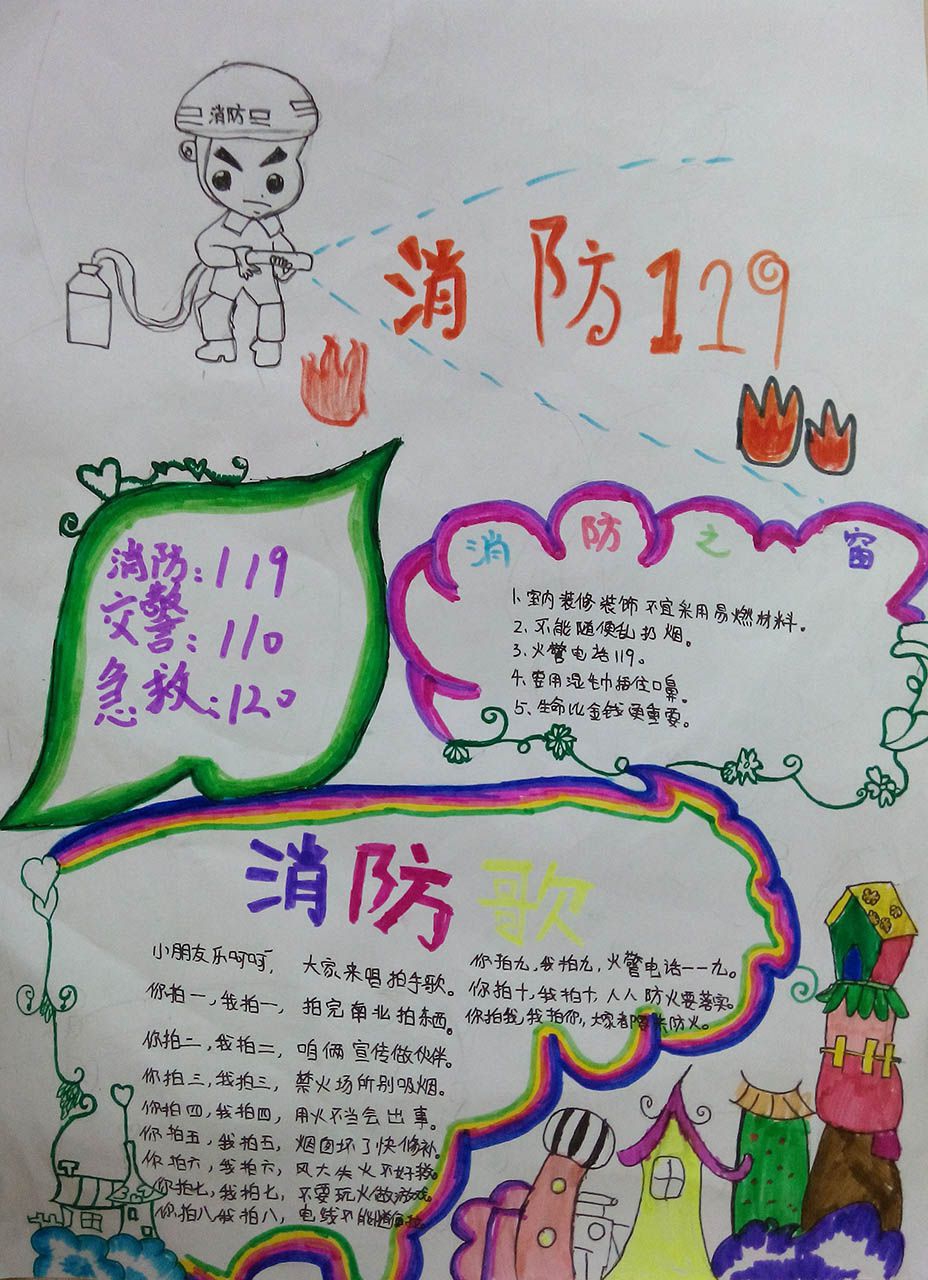 消防
消防119
消防:119
交警:110
急救:120
消防之窗
1.室内装修装饰不宜采用易燃材料。
2、不能随便乱扔烟。
3、火警电话119。
4、要用湿毛巾捂住口鼻。
5、生命比金钱更重要。
消防歌
小朋友乐呵呵, 大家来唱拍手歌。
你拍一,我拍一, 拍完南北拍东西。
你拍二,我拍二, 咱俩宣传做伙伴。
你拍三,我拍三, 禁火场所别吸烟。
你拍四,我拍四, 用火不当会出事。
你拍五,我拍五, 烟囱坏了快修补。
你拍六,我拍六, 风大失火不好救。
你拍七,我拍七, 不要玩火做游戏。
你拍八我拍八, 电线不能随
你拍九,我拍九,火警电话一一九。
你拍十,我拍十,人人防火要落实。
你拍我,我拍你,大家都要来防火。